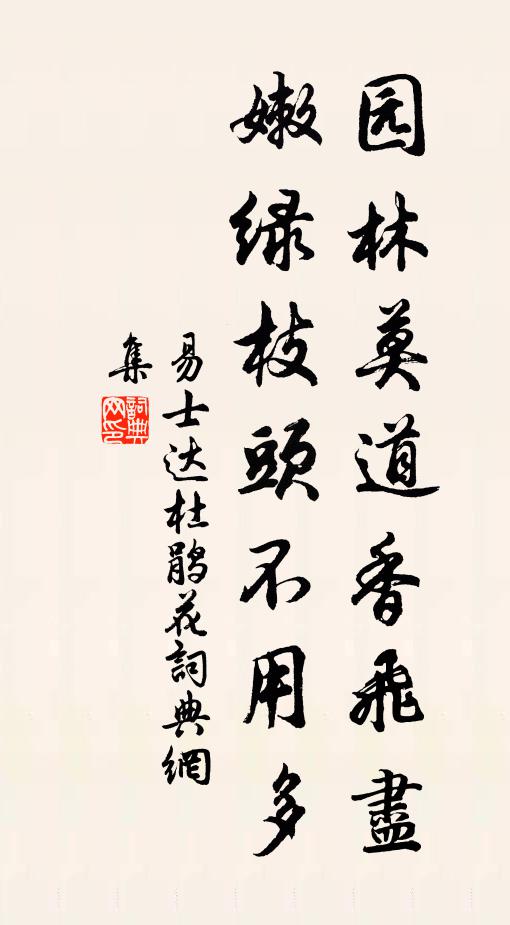 园林莫道香飛盡
嫩绿枝頭不用多
易士达杜鹃花詞典網
集
詞典网印